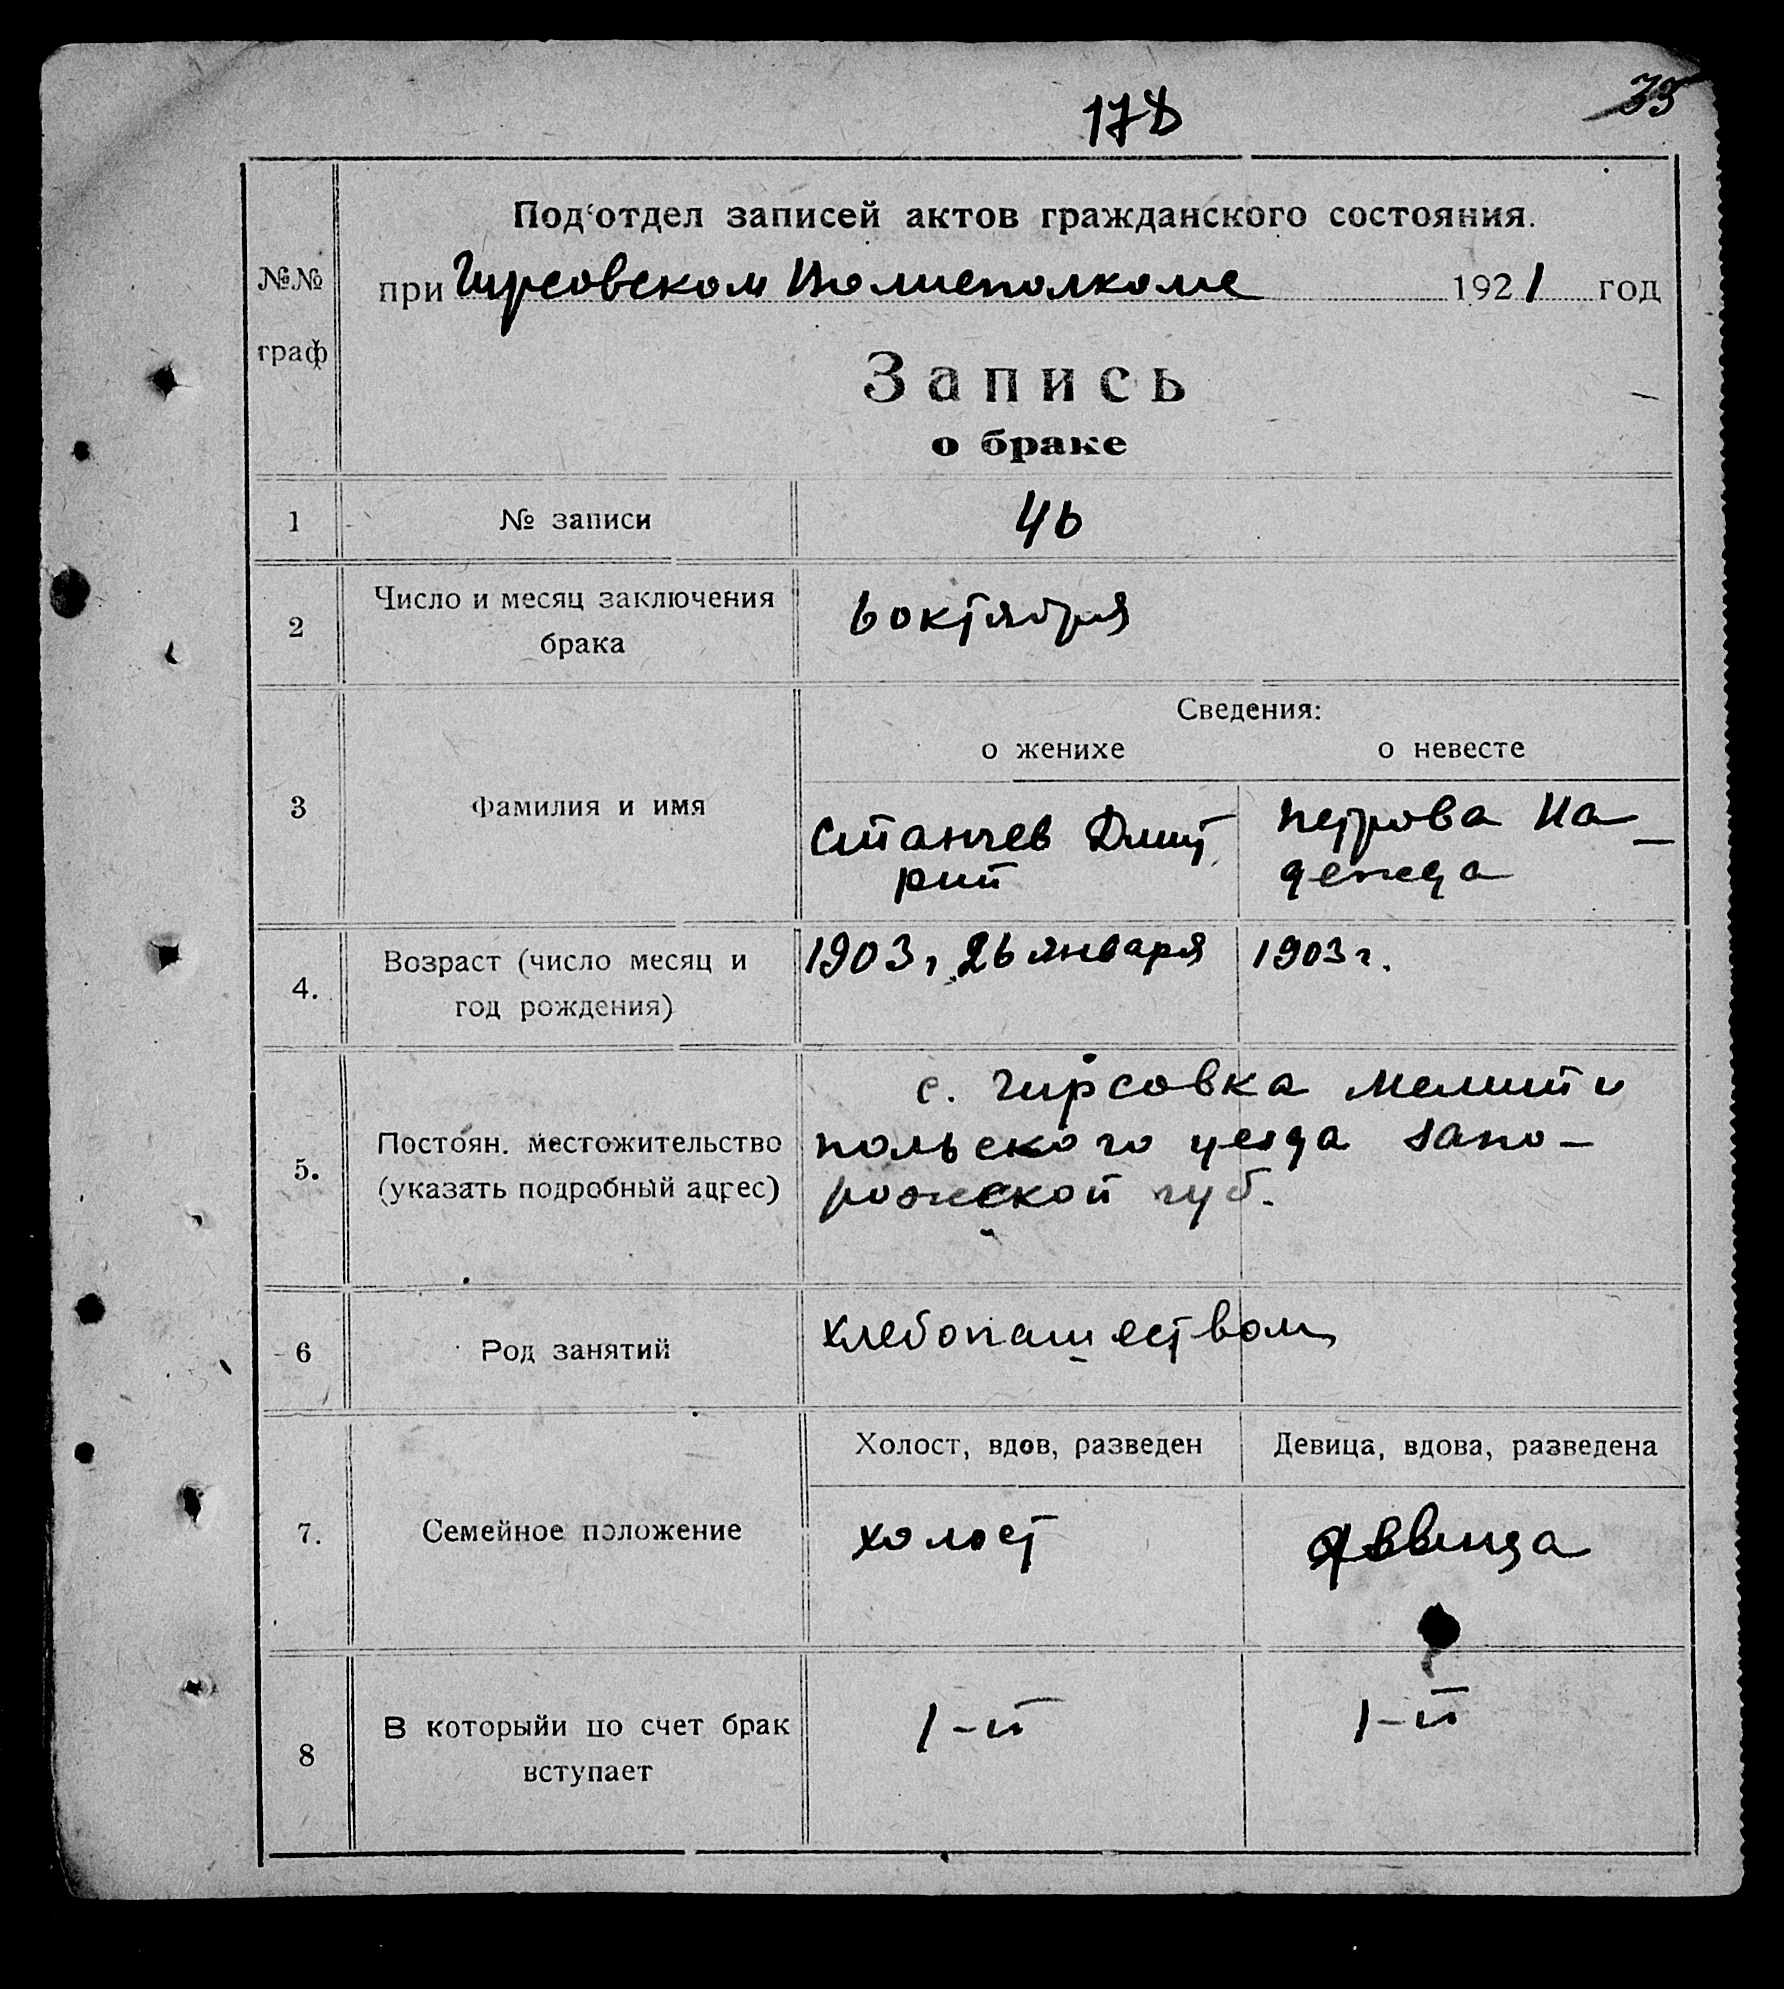 178
35
Под'отдел записей актов гражданского состояния.
№№
граф
при Гирсовском Волисполкоме 1921 год
Запись
о браке
1 № записи 46
2 Число и месяц заключения
брака
6 октября
Сведения:
о женихе о невесте
3 Фамилия и имя
Станчев Дмит
рий
Петрова На-
дежда
4. Возраст (число месяц и
год рождения)
1903 г. 26 января 1903 г.
5. Постоян. местожительство
(указать подробный адрес)
с. Гирсовка Мелити
польского уезда Запо-
рожской губ.
6 Род занятий хлебопашеством
Холост, вдов, разведен Девица, вдова, разведена
7. Семейное положение холост девица
8 В которыйи по счет брак
вступает
1-й 1-й